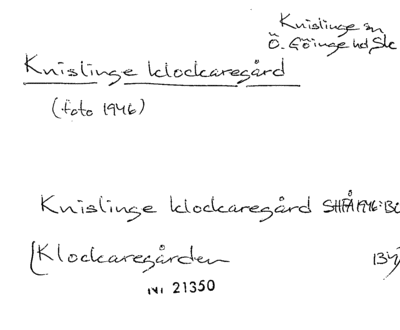 Knislinge sn
Ö. Göinge hd, Sk
Knislinge klockaregård
(foto 1946)
Knislinge klockaregård SHFÅ 1946:
Klockaregården
21350